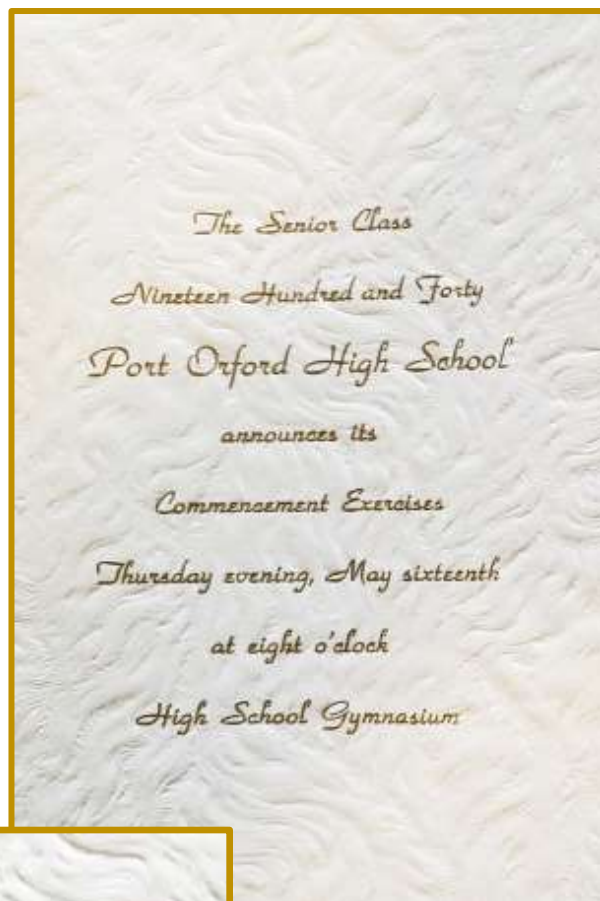 The Senior Class
Nineteen Hundred and Forty
Port Orford High School
announces its
Commencement Exercises
Thursday evening, May sixteenth
at eight o'clock
High School Gymnasium